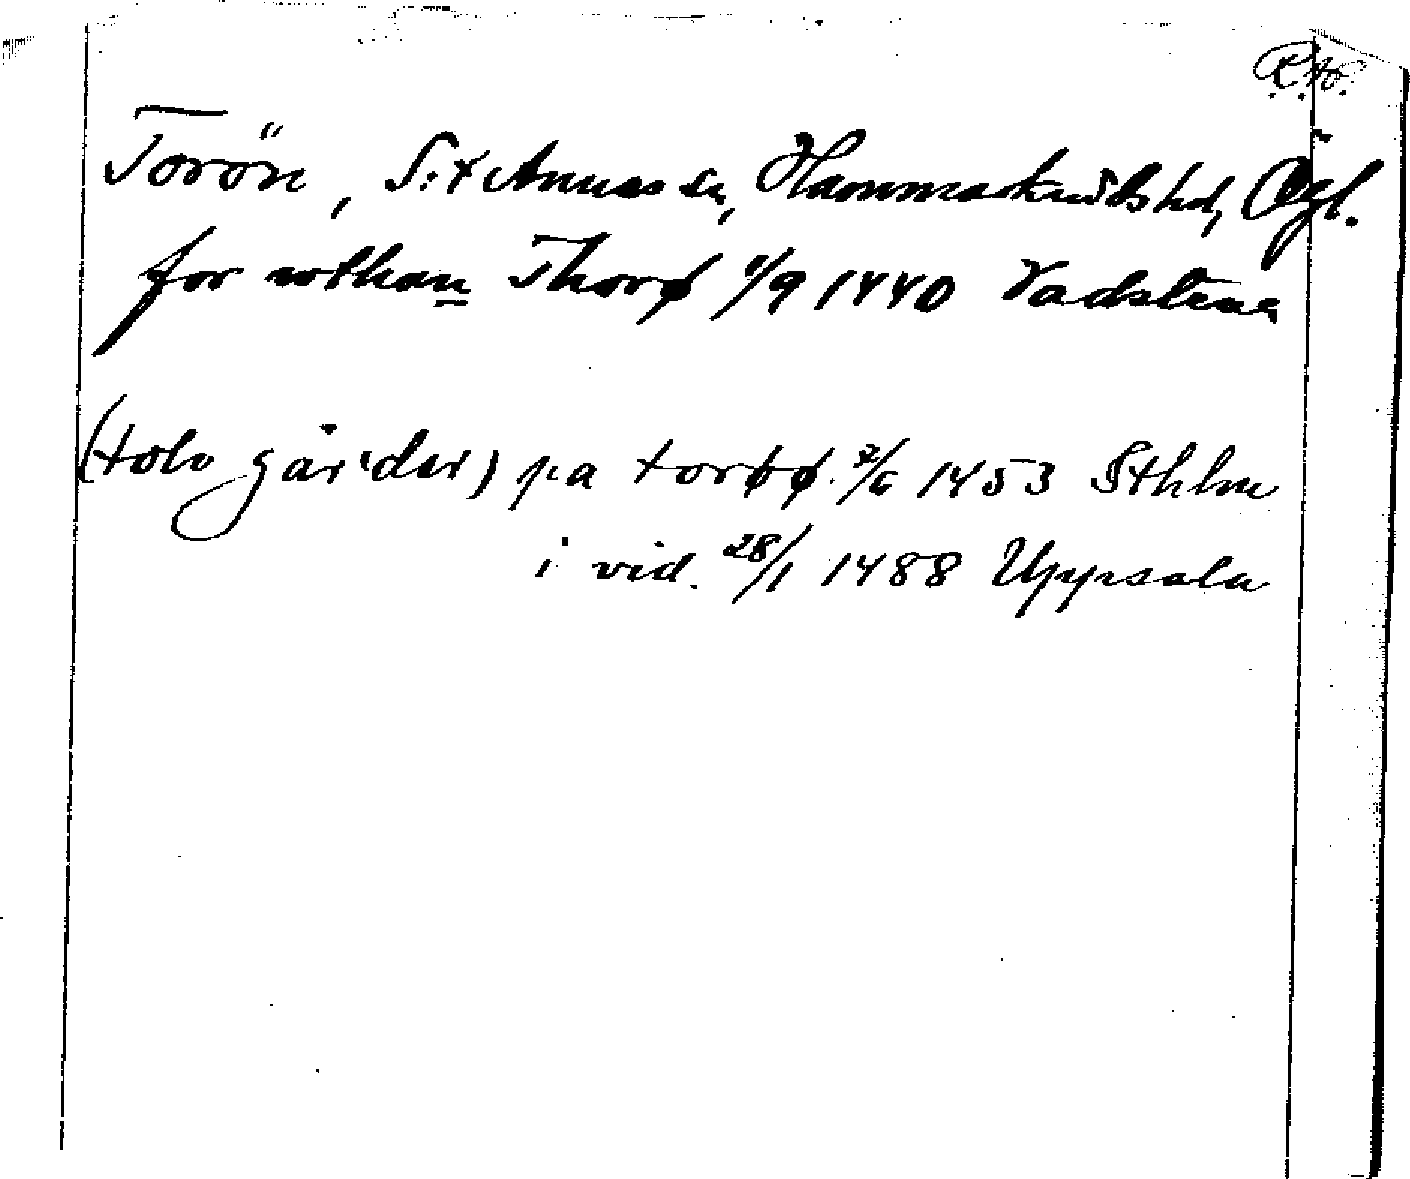 R.A.
Torön, S:t Annas sn, Hammarkinds hd, Ögl.
for nothan Thorø 1/9 1440 Vadstena
(tolv gårdar) pa torøø. 2/6 1453 Sthlm
i vid. 28/1 1488 Uppsala